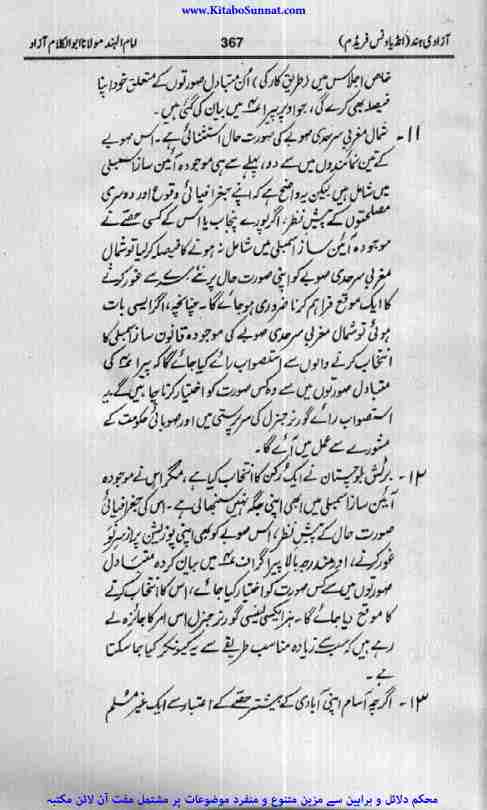 www.KitaboSunnat.com
آزادی ہند (انڈیا ونس فریڈم)
367
امام الہند مولانا ابوالکلام آزاد
خاص اجلاس میں (طریق کار کی) اُن متبادل صورتوں کے متعلق خود اپنا
فیصلہ بھی کرے گی، جو اوپر پیرا ۴ میں بیان کی گئی ہیں۔
۱۱۔ شمال مغربی سرحدی صوبے کی صورت حال استثنائی ہے۔ اس صوبے
کے تین نمائندوں میں سے دو، پہلے سے ہی موجودہ آئین ساز اسمبلی
میں شامل ہیں لیکن یہ واضح ہے کہ اپنے جغرافیائی وقوع اور دوسری
مصلحتوں کے پیش نظر، اگر پورے پنجاب یا اس کے کسی حصّے نے
موجودہ آئین ساز اسمبلی میں شامل نہ ہونے کا فیصلہ کر لیا تو شمال
مغربی سرحدی صوبے کو اپنی صورت حال پر نئے سرے سے غور کرنے
کا ایک موقع فراہم کرنا ضروری ہو جائے گا۔ چنانچہ، اگر ایسی بات
ہوئی تو شمال مغربی سرحدی صوبے کی موجودہ قانون ساز اسمبلی کا
انتخاب کرنے والوں سے استصواب رائے کیا جائے گا کہ پیرا ۴ کی
متبادل صورتوں میں سے وہ کس صورت کو اختیار کرنا چاہیں گے۔ یہ
استصواب رائے گورنر جنرل کی سرپرستی میں اور صوبائی حکومت کے
مشورے سے عمل میں آئے گا۔
۱۲۔ برٹش بلوچستان نے ایک رُکن کا انتخاب کیا ہے، مگر اس نے موجودہ
آئین ساز اسمبلی میں ابھی اپنی جگہ نہیں سنبھالی ہے۔ اس کی جغرافیائی
صورت حال کے پیش نظر، اس صوبے کو بھی اپنی پوزیشن پر از سر نو
غور کرنے، اور مندرجہ بالا پیراگراف ۴ میں بیان کردہ متبادل
صورتوں میں سے کس صورت کو اختیار کیا جائے، اس کا انتخاب کرنے
کا موقع دیا جائے گا۔ ہز ایکسی لینسی گورنر جنرل اس امر کا جائزہ لے
رہے ہیں کہ سب سے زیادہ مناسب طریقے سے یہ کیونکر کیا جا سکتا
ہے۔
۱۳۔ اگرچہ آسام اپنی آبادی کے بیشتر حصّے کے اعتبار سے ایک غیر مُسلم
محکم دلائل و براہین سے مزین متنوع و منفرد موضوعات پر مشتمل مفت آن لائن مکتبہ